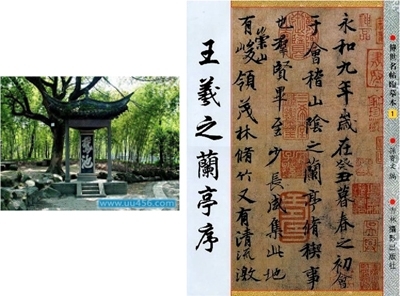 鵞池
www.uu456.com
1
吉林攝影出版社
永和九年歲在癸丑暮春之初會
于會稽山陰之蘭亭脩禊事
也羣賢畢至少長咸集此地
有崇山峻領茂林脩竹又有清流激
王羲之蘭亭序